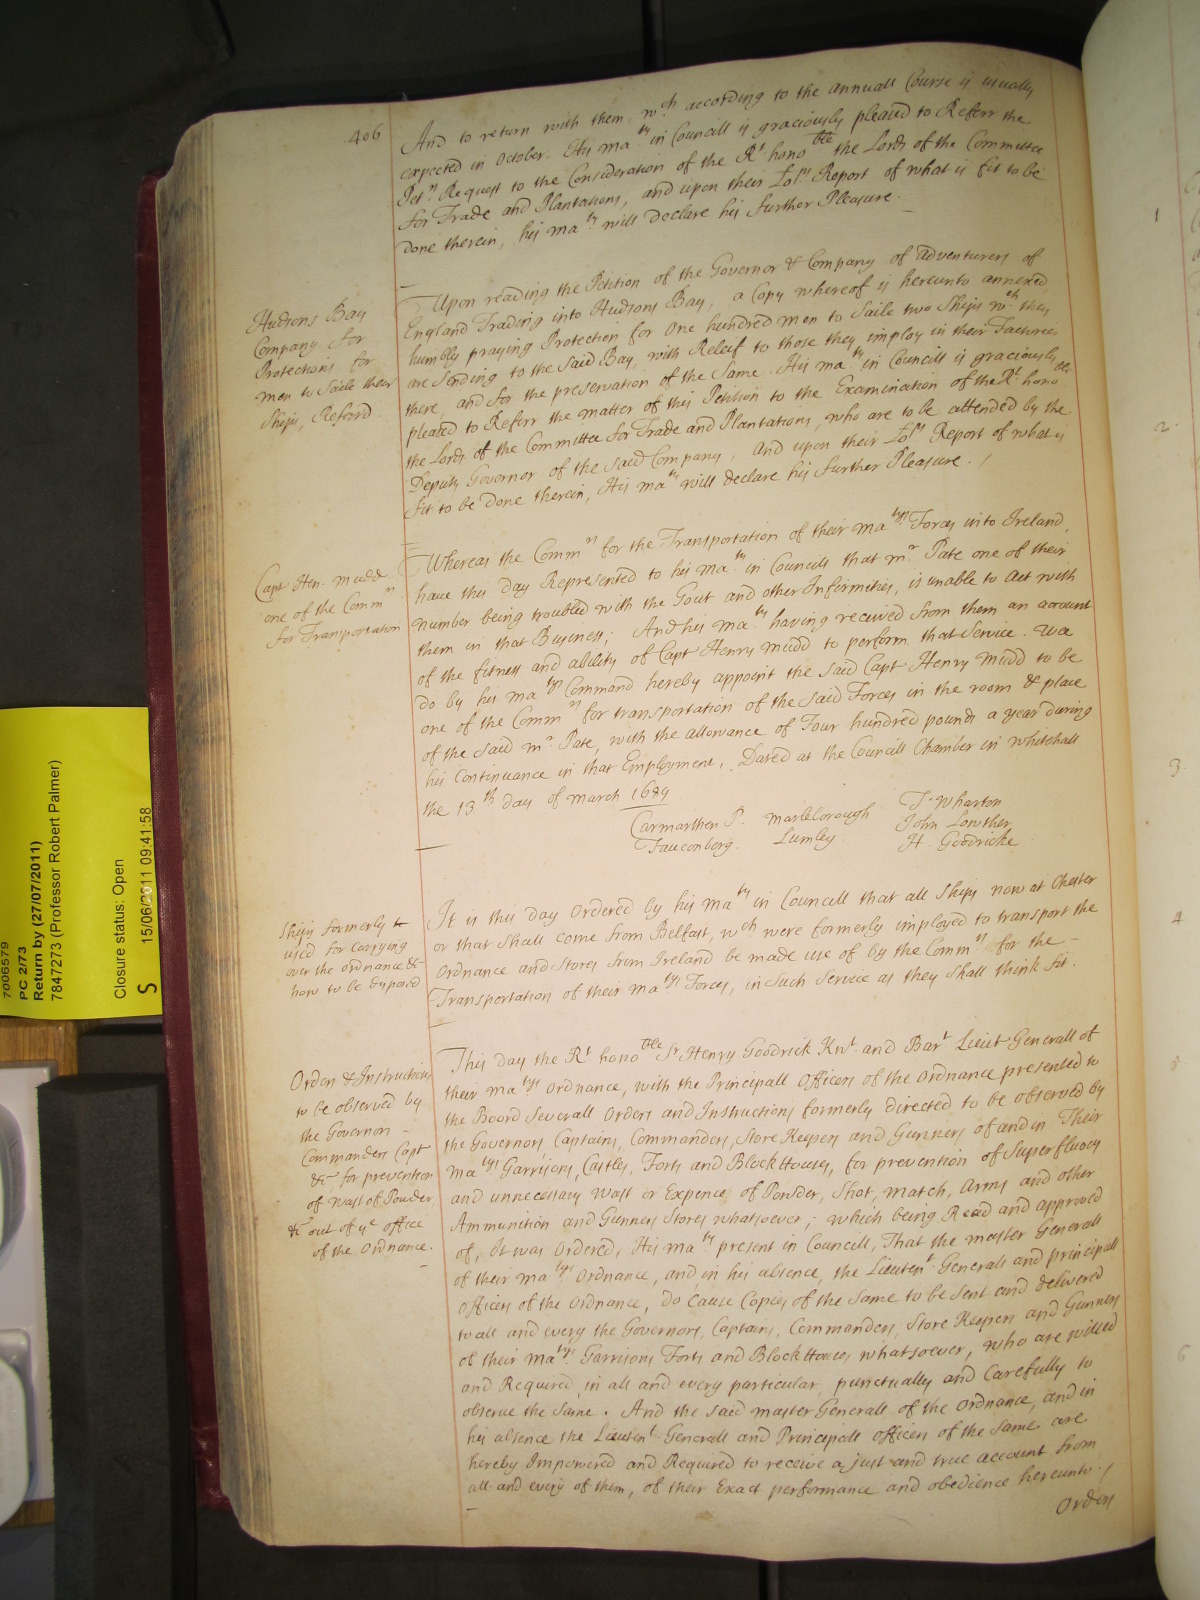 406
And to return with them wch according to the annuall Course is usually
expected in October. His maty in Councill is graciously pleased to Referr the
Petrs Request to the Consideration of the Rt honoble the Lords of the Committee
for Trade and Plantations, and upon their Lops Report of what is fit to be
done therein, his maty will Declare his further Pleasure.
Hudsons Bay
Company for
Protections for
men to Saile their
Ships, Referd
Upon reading the Petition of the Governor & Company of adventurers of
England Trading into Hudsons Bay, a Copy whereof is hereunto annexed
humbly praying Protection for One hundred men to Saile two Ships wch they
are Sending to the Said Bay, with Releif to those they imploy in their Factories
there, and for the preservation of the Same. His maty in Councill is graciously
pleased to Referr the matter of this Petition to the Examination of the Rt honoble
the Lords of the Committee for Trade and Plantations, who are to be attended by the
Deputy Governor of the said Company, And upon their Lops Report of what is
fit to be Done therein, His maty will declare his further Pleasure.
Capt Hen. Mudd
one of the Commrs
for Transportation
Whereas the Commrs for the Transportation of their matys Forces into Ireland,
have this day Represented to his maty in Councill that mr Pate one of their
number being troubled with the Gout and other Infirmities, is unable to Act with
them in that Business; And his maty having received from them an account
of the fitness and ability of Capt Henry Mudd to perform that Service. Wee
do by his matys Command hereby appoint the said Capt Henry Mudd to be
one of the Commrs for transportation of the said Forces in the room & place
of the said mr Pate, with the allowance of Four hundred pounds a year during
his Continuance in that Employment. Dated at the Councill Chamber in Whitehall
the 13th day of March 1689
Carmarthen P. Marleborough T. Wharton
Fauconberg. Lumley John Lowther
H. Goodricke
Ships formerly
used for carrying
over the ordnance &c
how to be disposed
It is this day Ordered by his maty in Councill that all Ships now at Chester
or that shall come from Belfast, wch were formerly imployed to transport the
Ordnance and Stores from Ireland be made use of by the Commrs for the
Transportation of their matys Forces, in Such Service as they Shall think fit.
Orders & Instructions
to be observed by
the Governors
Commanders Capt
&c for prevention
of Wast of Powder
&c out of ye office
of the Ordnance.
This day the Rt honoble Sr Henry Goodrick Knt and Bart Lieut Generall of
their matys Ordnance, with the Principall Officers of the Ordnance presented to
the Board Severall Orders and Instructions formerly directed to be observed by
the Governors, Captains, Commanders, Store Keepers and Gunners of and in Their
Matys Garrisons, Castles, Forts and Block Houses, for prevention of Superfluous
and unnecessary Wast or Expence of Powder, Shot, Match, Arms and other
Ammunition and Gunners Stores whatsoever; which being Read and approved
of, It was Ordered, His maty present in Councill, That the master Generall
of their matys Ordnance, and in his absence, the Lieutent Generall and principall
Officers of the Ordnance, do Cause Copies of the Same to be Sent and delivered
to all and every the Governors, Captains, Commanders, Store Keepers and Gunners
of their matys Garrisons Forts and Block Houses whatsoever, who are willed
and Required in all and every particular, punctually and Carefully to
observe the Same. And the said master Generall of the Ordnance, and in
his absence the Lieutent Generall and Principall officers of the Same are
hereby Impowered and Required to receive a just and true account from
all and every of them, of their Exact performance and obedience hereunto.
Orders
7006579
PC 2/73
Return by (27/07/2011)
7847273 (Professor Robert Palmer)
Closure status: Open
S 15/06/2011 09:41:58
1
2
3
4
5
6